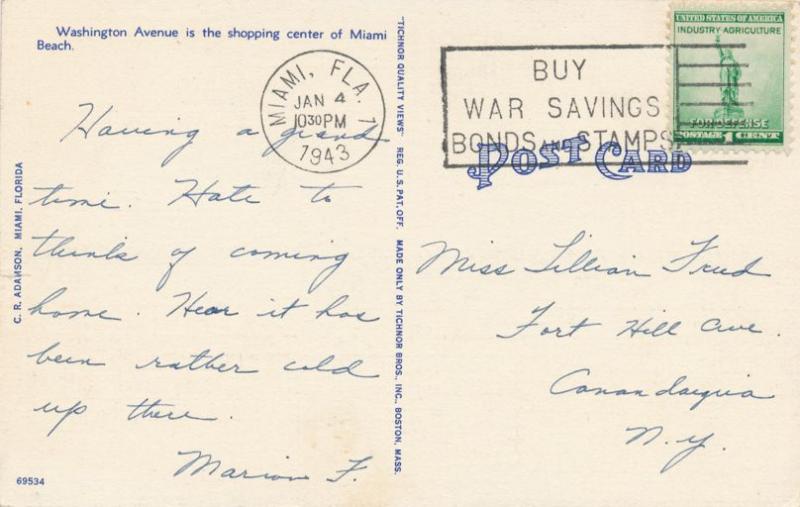 Washington Avenue is the shopping center of Miami
Beach.
Having a grand
time. Hate to
think of coming
home. Hear it has
been rather cold
up there.
Marion F.
69534
C. R. ADAMSON, MIAMI, FLORIDA
"TICHNOR QUALITY VIEWS" REG. U. S. PAT. OFF. MADE ONLY BY TICHNOR BROS., INC., BOSTON, MASS.
MIAMI, FLA. 1
JAN 4
1030PM
1943
BUY
WAR SAVINGS
BONDS AND STAMPS
UNITED STATES OF AMERICA
INDUSTRY AGRICULTURE
FOR DEFENSE
POSTAGE 1 CENT
POST CARD
Miss Lillian Freed
Fort Hill Ave.
Canandaigua
N.Y.